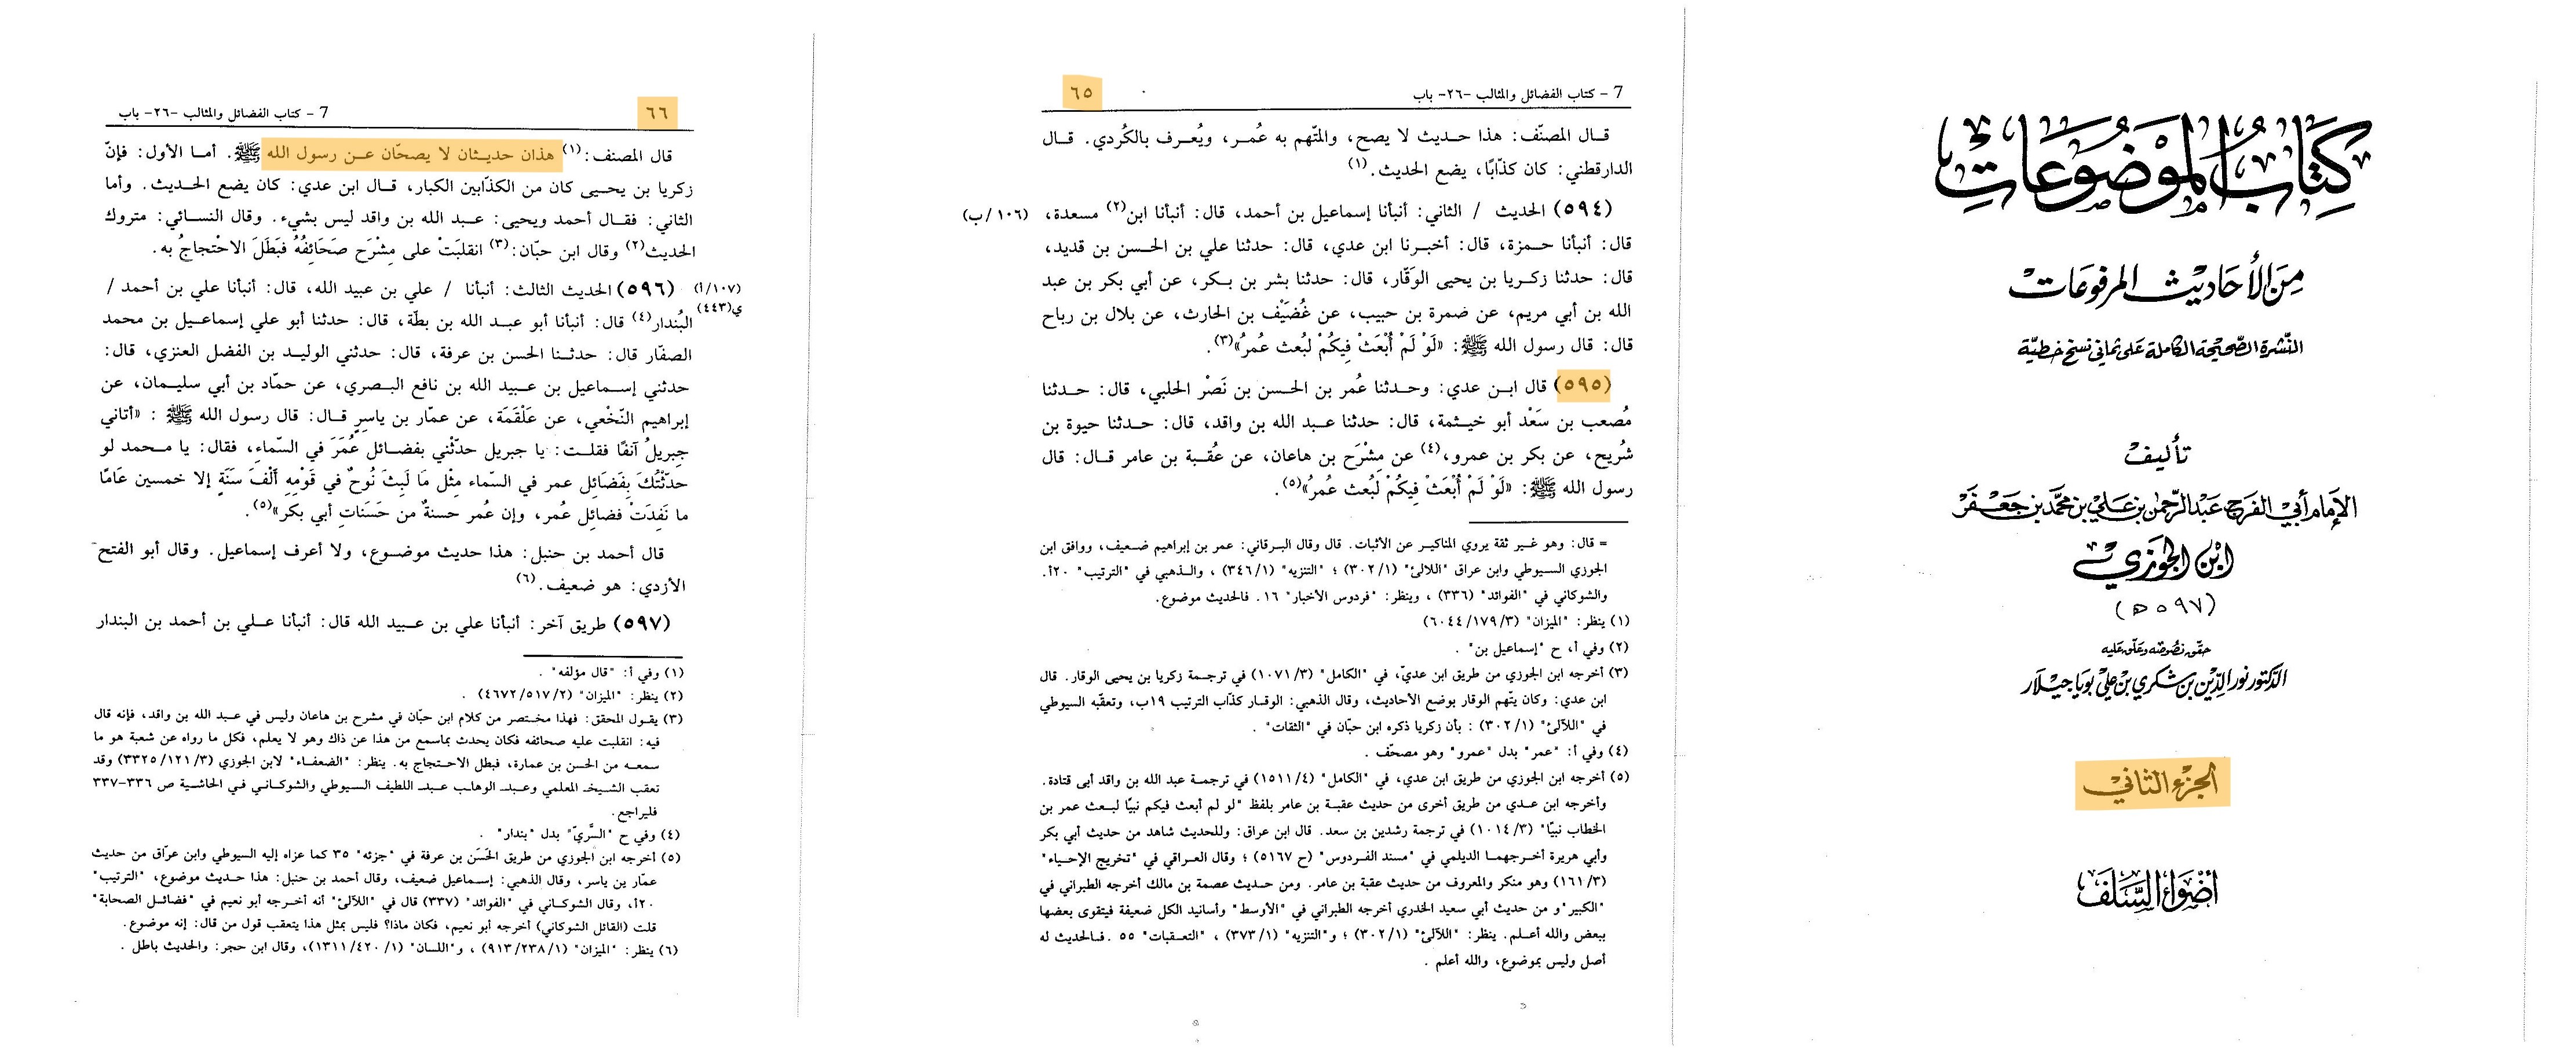 كتاب الموضوعات
من الأحاديث المرفوعات
النشرة الصحيحة الكاملة على ثماني نسخ خطية
تأليف
الإمام أبي الفرج عبد الرحمن بن علي بن محمد بن جعفر
ابن الجوزي
(٥٩٧ ه)
حقق نصوصه وعلق عليه
الدكتور نور الدين بن شكري بن علي بويا جيلار
الجزء الثاني
أضواء السلف
7 - كتاب الفضائل والمثالب -٢٦- باب
٦٥
قال المصنّف: هذا حديث لا يصح، والمتّهم به عُمر، ويُعرف بالكُردي. قال
الدارقطني: كان كذّابًا، يضع الحديث.(١)
(٥٩٤) الحديث / الثاني: أنبأنا إسماعيل بن أحمد، قال: أنبأنا ابن(٢) مسعدة، (١٠٦/ب)
قال: أنبأنا حمزة، قال: أخبرنا ابن عدي، قال: حدثنا علي بن الحسن بن قديد،
قال: حدثنا زكريا بن يحيى الوَقّار، قال: حدثنا بشر بن بكر، عن أبي بكر بن عبد
الله بن أبي مريم، عن ضمرة بن حبيب، عن غُضَيْف بن الحارث، عن بلال بن رباح
قال: قال رسول الله ﷺ: «لَوْ لَمْ أُبْعَثْ فِيكُمْ لبُعث عمرُ»(٣).
(٥٩٥) قال ابن عدي: وحدثنا عُمر بن الحسن بن نَصْر الحلبي، قال: حدثنا
مُصعب بن سَعْد أبو خيثمة، قال: حدثنا عبد الله بن واقد، قال: حدثنا حيوة بن
شُريح، عن بكر بن عمرو،(٤) عن مِشْرَح بن هاعان، عن عقُبة بن عامر قال: قال
رسول الله ﷺ: «لَوْ لَمْ أُبْعَثْ فِيكُمْ لَبُعث عُمرُ»(٥).
= قال: وهو غير ثقة يروي المناكير عن الأثبات. قال وقال البرقاني: عمر بن إبراهيم ضعيف، ووافق ابن
الجوزي السيوطي وابن عراق "اللآلئ" (٣٠٢/١) ؛ "التنزيه" (٣٤٦/١) ، والذهبي في "الترتيب" ٢٠أ.
والشوكاني في "الفوائد" (٣٣٦) ، وينظر: "فردوس الأخبار" ١٦. فالحديث موضوع.
(١) ينظر: "الميزان" (٦٠٤٤/١٧٩/٣)
(٢) وفي أ، ح "إسماعيل بن" .
(٣) أخرجه ابن الجوزي من طريق ابن عديّ، في "الكامل" (١٠٧١/٣) في ترجمة زكريا بن يحيى الوقار. قال
ابن عدي: وكان يتّهم الوقار بوضع الأحاديث، وقال الذهبي: الوقار كذّاب الترتيب ١٩ب، وتعقّبه السيوطي
في "اللآلئ" (٣٠٢/١) : بأن زكريا ذكره ابن حبّان في "الثقات" .
(٤) وفي أ: "عمر" بدل "عمرو" وهو مصحّف .
(٥) أخرجه ابن الجوزي من طريق ابن عدي، في "الكامل" (١٥١١/٤) في ترجمة عبد الله بن واقد أبي قتادة.
وأخرجه ابن عدي من طريق أخرى من حديث عقبة بن عامر بلفظ "لو لم أبعث فيكم نبيًا لبعث عمر بن
الخطاب نبيًا" (١٠١٤/٣) في ترجمة رشدين بن سعد. قال ابن عراق: وللحديث شاهد من حديث أبي بكر
وأبي هريرة أخرجهما الديلمي في "مسند الفردوس" (ح ٥١٦٧) ؛ وقال العراقي في "تخريج الإحياء"
(١٦١/٣) وهو منكر والمعروف من حديث عقبة بن عامر. ومن حديث عصمة بن مالك أخرجه الطبراني في
"الكبير" و من حديث أبي سعيد الخدري أخرجه الطبراني في "الأوسط" وأسانيد الكل ضعيفة فيتقوى بعضها
ببعض والله أعلم. ينظر: "اللآلئ" (٣٠٢/١) ؛ و"التنزيه" (٣٧٣/١) ، "التعقبات" ٥٥ .فالحديث له
أصل وليس بموضوع، والله أعلم .
٦٦
7 - كتاب الفضائل والمثالب -٢٦- باب
قال المصنف:(١) هذان حديثان لا يصحّان عن رسول الله ﷺ. أما الأول: فإنّ
زكريا بن يحيى كان من الكذّابين الكبار، قال ابن عدي: كان يضع الحديث. وأما
الثاني: فقال أحمد ويحيى: عبد الله بن واقد ليس بشيء. وقال النسائي: متروك
الحديث(٢) وقال ابن حبّان:(٣) انقلبَتْ على مِشْرَح صَحَائِفُهُ فبَطَلَ الاحْتجاجُ به.
(٥٩٦) الحديث الثالث: أنبأنا / علي بن عبيد الله، قال: أنبأنا علي بن أحمد / (١٠٧/أ)
البُندار(٤) قال: أنبأنا أبو عبد الله بن بطّة، قال: حدثنا أبو علي إسماعيل بن محمد ي(٤٤٣)
الصفّار قال: حدثنا الحسن بن عرفة، قال: حدثني الوليد بن الفضل العنزي، قال:
حدثني إسماعيل بن عبيد الله بن نافع البصري، عن حمّاد بن أبي سليمان، عن
إبراهيم النّخْعي، عن عَلْقَمَة، عن عمّار بن ياسرٍ قال: قال رسول الله ﷺ : «أتاني
جبريلُ آنفًا فقلت: يا جبريل حدّثْني بفضائل عُمَرَ في السّماءِ، فقال: يا محمد لو
حدّثْتُكَ بِفَضَائِل عمر في السّماء مِثْل مَا لَبِثَ نُوحٌ في قَوْمِهِ أَلْفَ سَنَةٍ إلا خمسين عَامًا
ما نَفِدَتْ فضائِل عُمر، وإن عُمر حسنةٌ من حَسَناتِ أبي بكر»(٥).
قال أحمد بن حنبل: هذا حديث موضوع، ولا أعرف إسماعيل. وقال أبو الفتح
الأزدي: هو ضعيف.(٦)
(٥٩٧) طريق آخر: أنبأنا علي بن عبيد الله قال: أنبأنا علي بن أحمد بن البندار
(١) وفي أ: "قال مؤلفه" .
(٢) ينظر: "الميزان" (٤٦٧٢/٥١٧/٢) .
(٣) يقول المحقق: فهذا مختصر من كلام ابن حبّان في مشرح بن هاعان وليس في عبد الله بن واقد، فإنه قال
فيه: انقلبت عليه صحائفه فكان يحدث بماسمع من هذا عن ذاك وهو لا يعلم، فكل ما رواه عن شعبة هو ما
سمعه من الحسن بن عمارة، فبطل الاحتجاج به. ينظر: "الضعفاء" لابن الجوزي (٣٣٢٥/١٢١/٣) وقد
تعقب الشيخ المعلمي وعبد الوهاب عبد اللطيف السيوطي والشوكاني في الحاشية ص ٣٣٦-٣٣٧
فليراجع.
(٤) وفي ح "السَّريّ" بدل "بندار" .
(٥) أخرجه ابن الجوزي من طريق الحَسَن بن عرفة في "جزئه" ٣٥ كما عزاه إليه السيوطي وابن عرّاق من حديث
عمّار بن ياسر، وقال الذهبي: إسماعيل ضعيف، وقال أحمد بن حنبل: هذا حديث موضوع، "الترتيب"
٢٠أ، وقال الشوكاني في "الفوائد" (٣٣٧) قال في "اللآلئ" أنه أخرجه أبو نعيم في "فضائل الصحابة"
قلت (القائل الشوكاني) أخرجه أبو نعيم، فكان ماذا؟ فليس بمثل هذا يتعقب قول من قال: إنه موضوع.
(٦) ينظر: "الميزان" (٩١٣/٢٣٨/١) ، و"اللسان" (١٣١١/٤٢٠/١)، وقال ابن حجر: والحديث باطل .